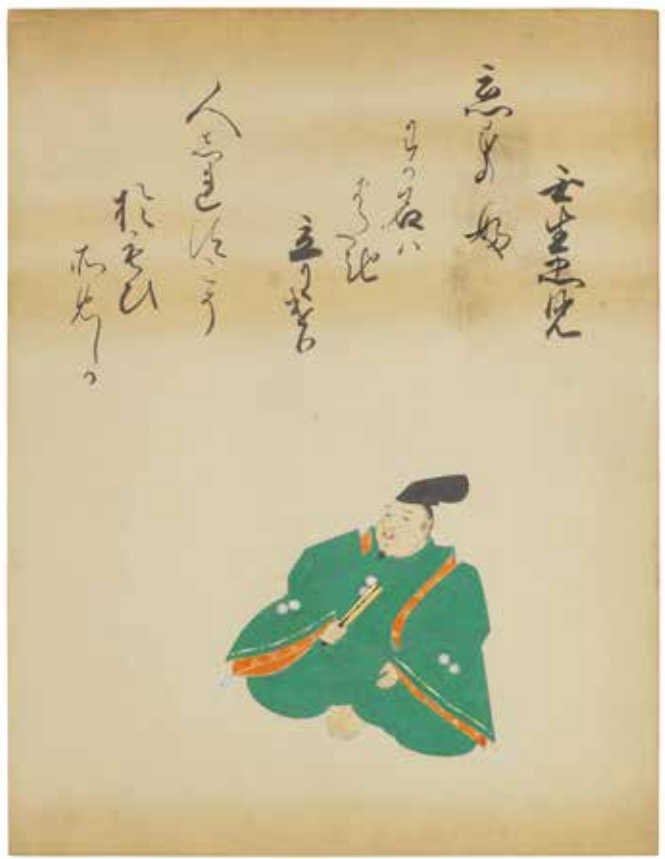 壬生忠見
恋すてふ
わか名ハ
またき
立にけり
人しれすこそ
おもひ
そめしか